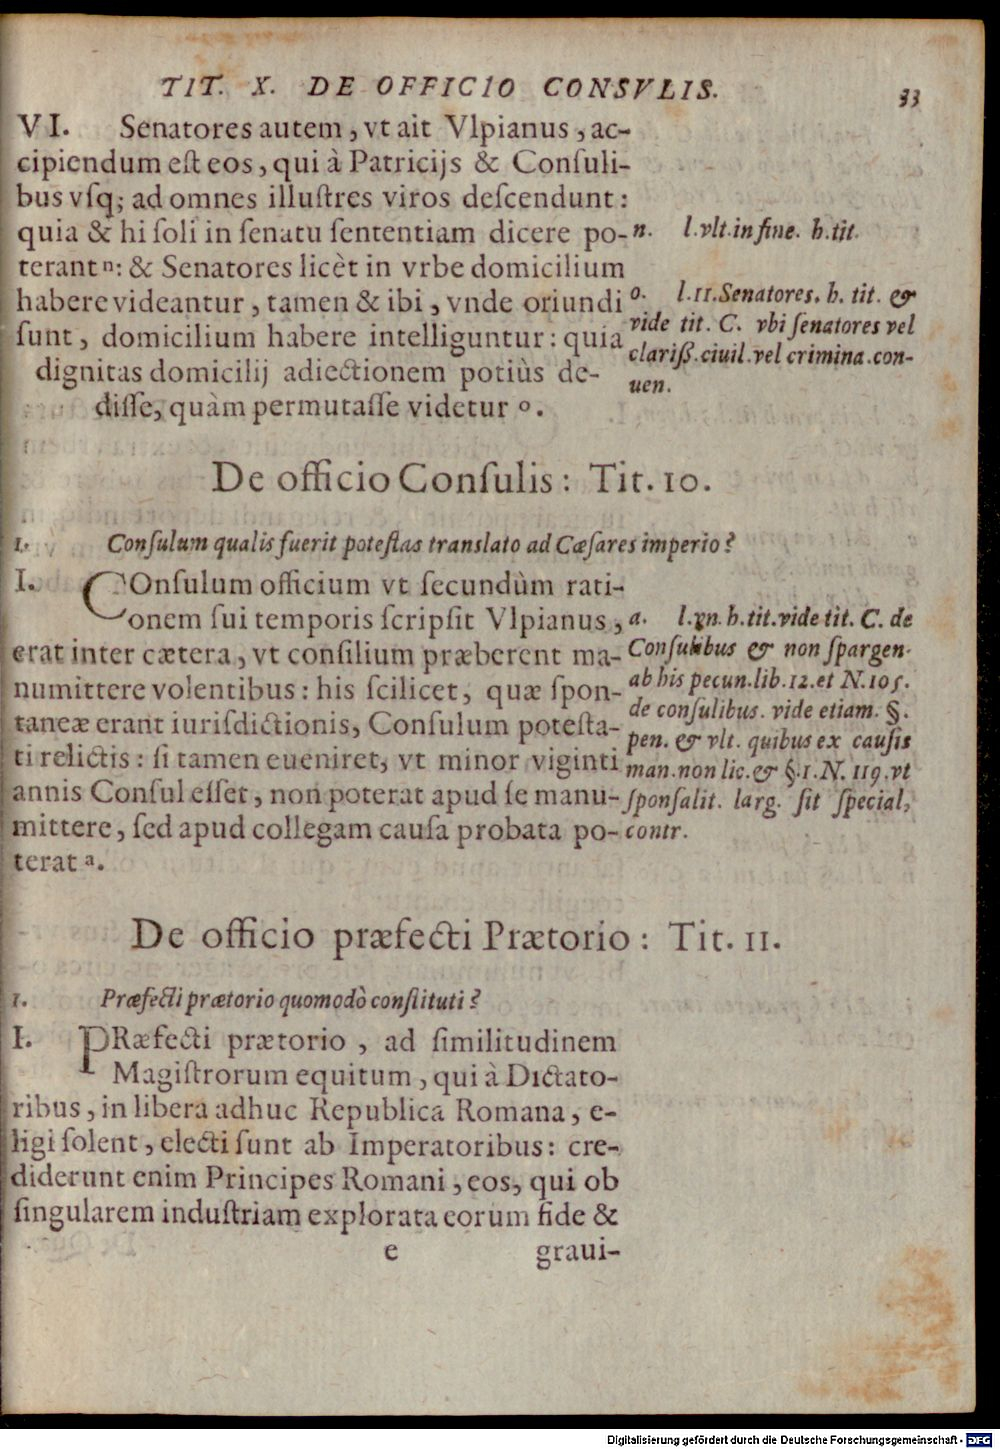 TIT. X. DE OFFICIO CONSVLIS. 33
VI. Senatores autem, vt ait Vlpianus, ac-
cipiendum eſt eos, qui à Patricijs & Conſuli-
bus vſq; ad omnes illuſtres viros deſcendunt:
quia & hi ſoli in ſenatu ſententiam dicere po-
terant n: & Senatores licèt in vrbe domicilium
habere videantur, tamen & ibi, vnde oriundi
ſunt, domicilium habere intelliguntur: quia
dignitas domicilij adiectionem potiùs de-
diſſe, quàm permutaſſe videtur o.
n. l. vlt. in fine. h. tit.
o. l. 11. Senatores. h. tit. &
vide tit. C. vbi ſenatores vel
clariſſ. ciuil. vel crimina. con-
uen.
De officio Conſulis: Tit. 10.
1. Conſulum qualis fuerit poteſtas translato ad Cæſares imperio?
I. COnſulum officium vt ſecundùm rati-
onem ſui temporis ſcripſit Vlpianus,
erat inter cætera, vt conſilium præberent ma-
numittere volentibus: his ſcilicet, quæ ſpon-
taneæ erant iuriſdictionis, Conſulum poteſta-
ti relictis: ſi tamen eueniret, vt minor viginti
annis Conſul eſſet, non poterat apud ſe manu-
mittere, ſed apud collegam cauſa probata po-
terat a.
a. l. vn. h. tit. vide tit. C. de
Conſulibus & non ſpargen.
ab his pecun. lib. 12. et N. 105.
de conſulibus. vide etiam. §.
pen. & vlt. quibus ex cauſis
man. non lic. & §. 1. N. 119. vt
ſponſalit. larg. ſit ſpecial,
contr.
De officio præfecti Prætorio: Tit. 11.
1. Præfecti prætorio quomodò conſtituti?
I. PRæfecti prætorio, ad ſimilitudinem
Magiſtrorum equitum, qui à Dictato-
ribus, in libera adhuc Republica Romana, e-
ligi ſolent, electi ſunt ab Imperatoribus: cre-
diderunt enim Principes Romani, eos, qui ob
ſingularem induſtriam explorata eorum fide &
e graui-
Digitalisierung gefördert durch die Deutsche Forschungsgemeinschaft - DFG